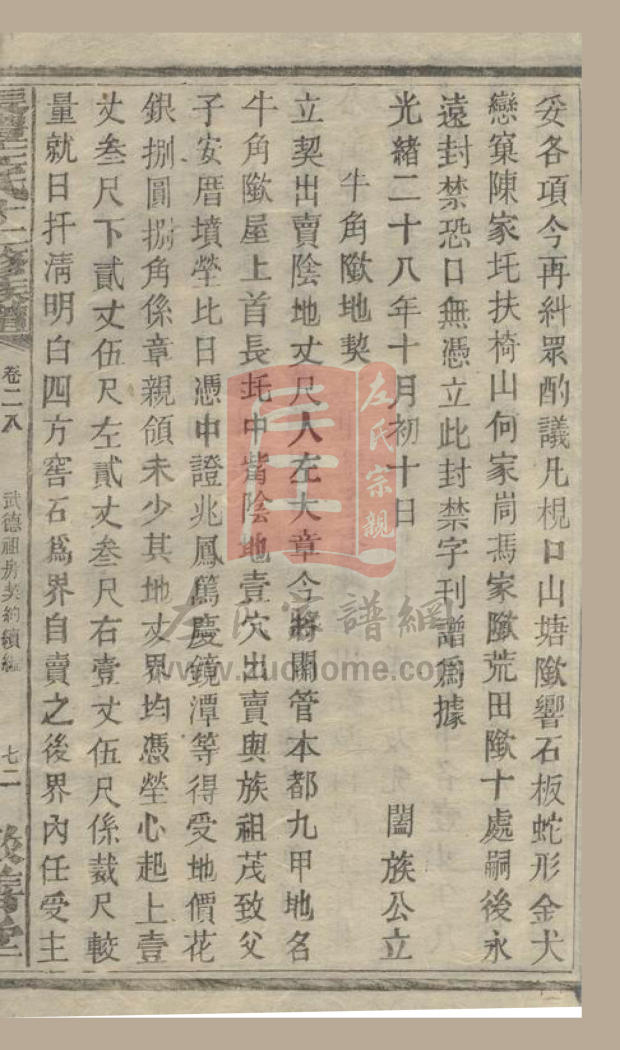 妥各項今再糾眾酌議凡梘口山塘墩響石板蛇形金犬
戀窠陳家坵扶椅山何家崗馮家墩荒田墩十處嗣後永
遠封禁恐口無憑立此封禁字刊譜爲據
光緒二十八年十月初十日 闔族公立
牛角墩地契
立契出賣陰地丈尺人左大章今將關管本都九甲地名
牛角墩屋上首長坵中嘴陰地壹穴出賣與族祖茂致父
子安厝墳塋比日憑中證兆鳳萬慶鏡潭等得受地價花
銀捌圓捌角係章親領未少其地丈界均憑塋心起上壹
丈叁尺下貳丈伍尺左貳丈叁尺右壹丈伍尺係裁尺較
量就日扦清明白四方窖石爲界自賣之後界內任受主
卷二八
武德祖房契約續編
七二
左氏宗親
左氏家譜網
www.zuohome.com